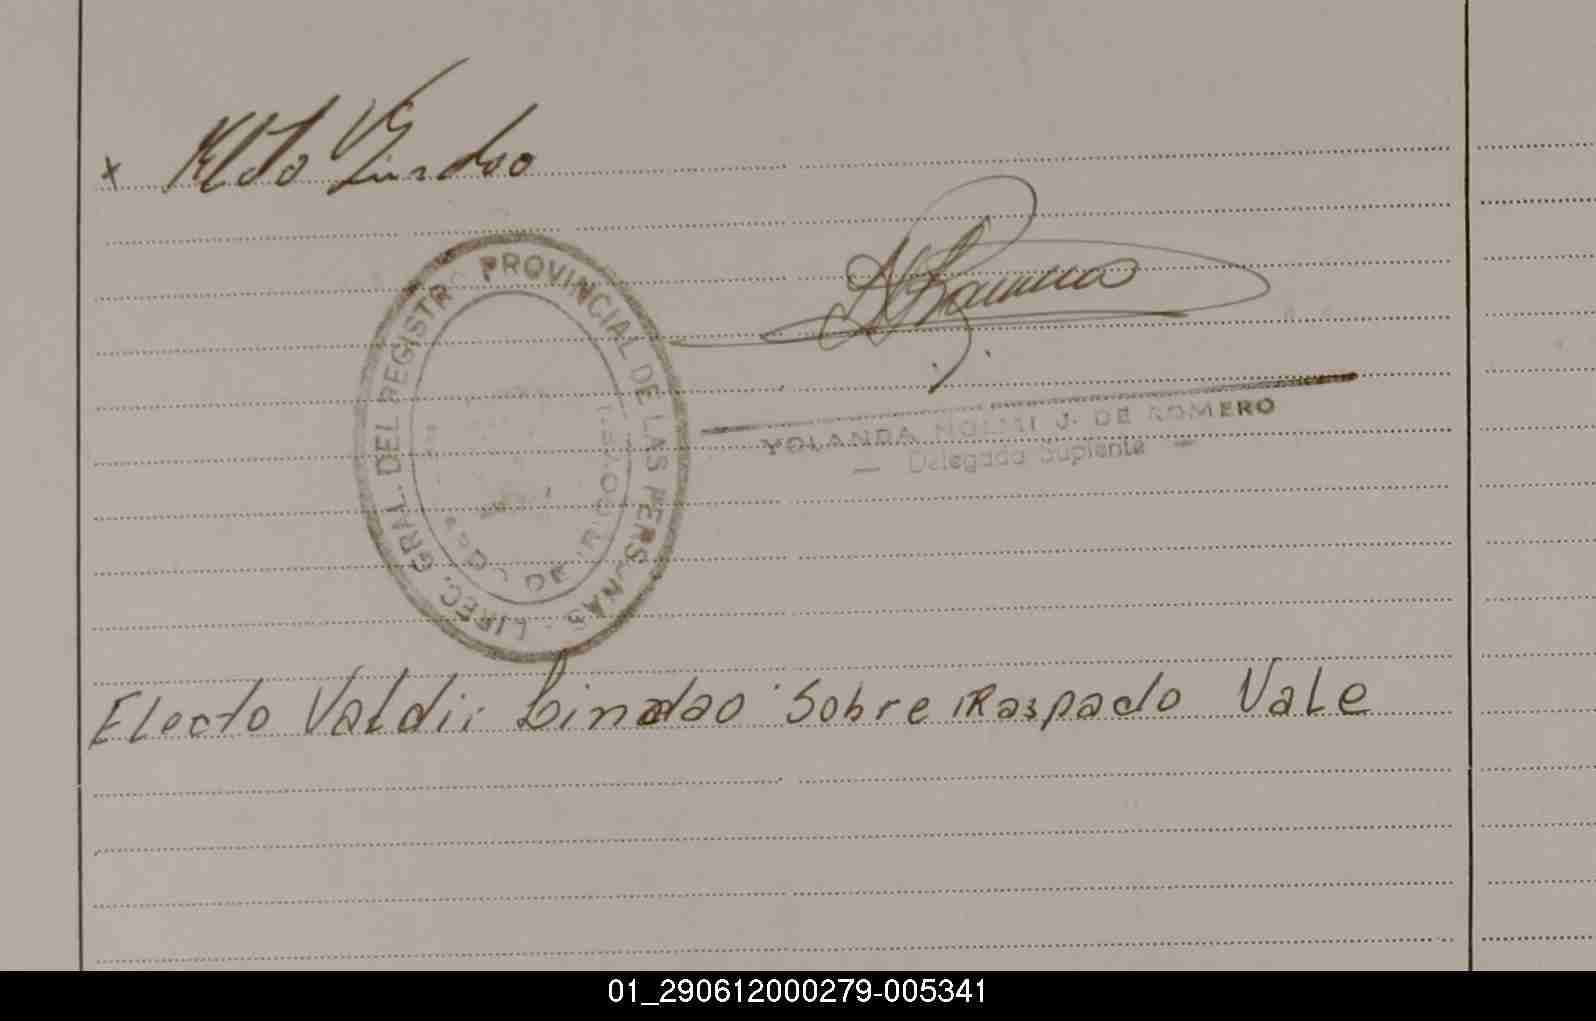 x Aldo Lindao
DIREC. GRAL. DEL REGISTRO PROVINCIAL DE LAS PERSONAS
DE
YOLANDA NOEMI J. DE ROMERO
— Delegada Suplente —
Electo Valdir Lindao Sobre Raspado Vale
01_290612000279-005341